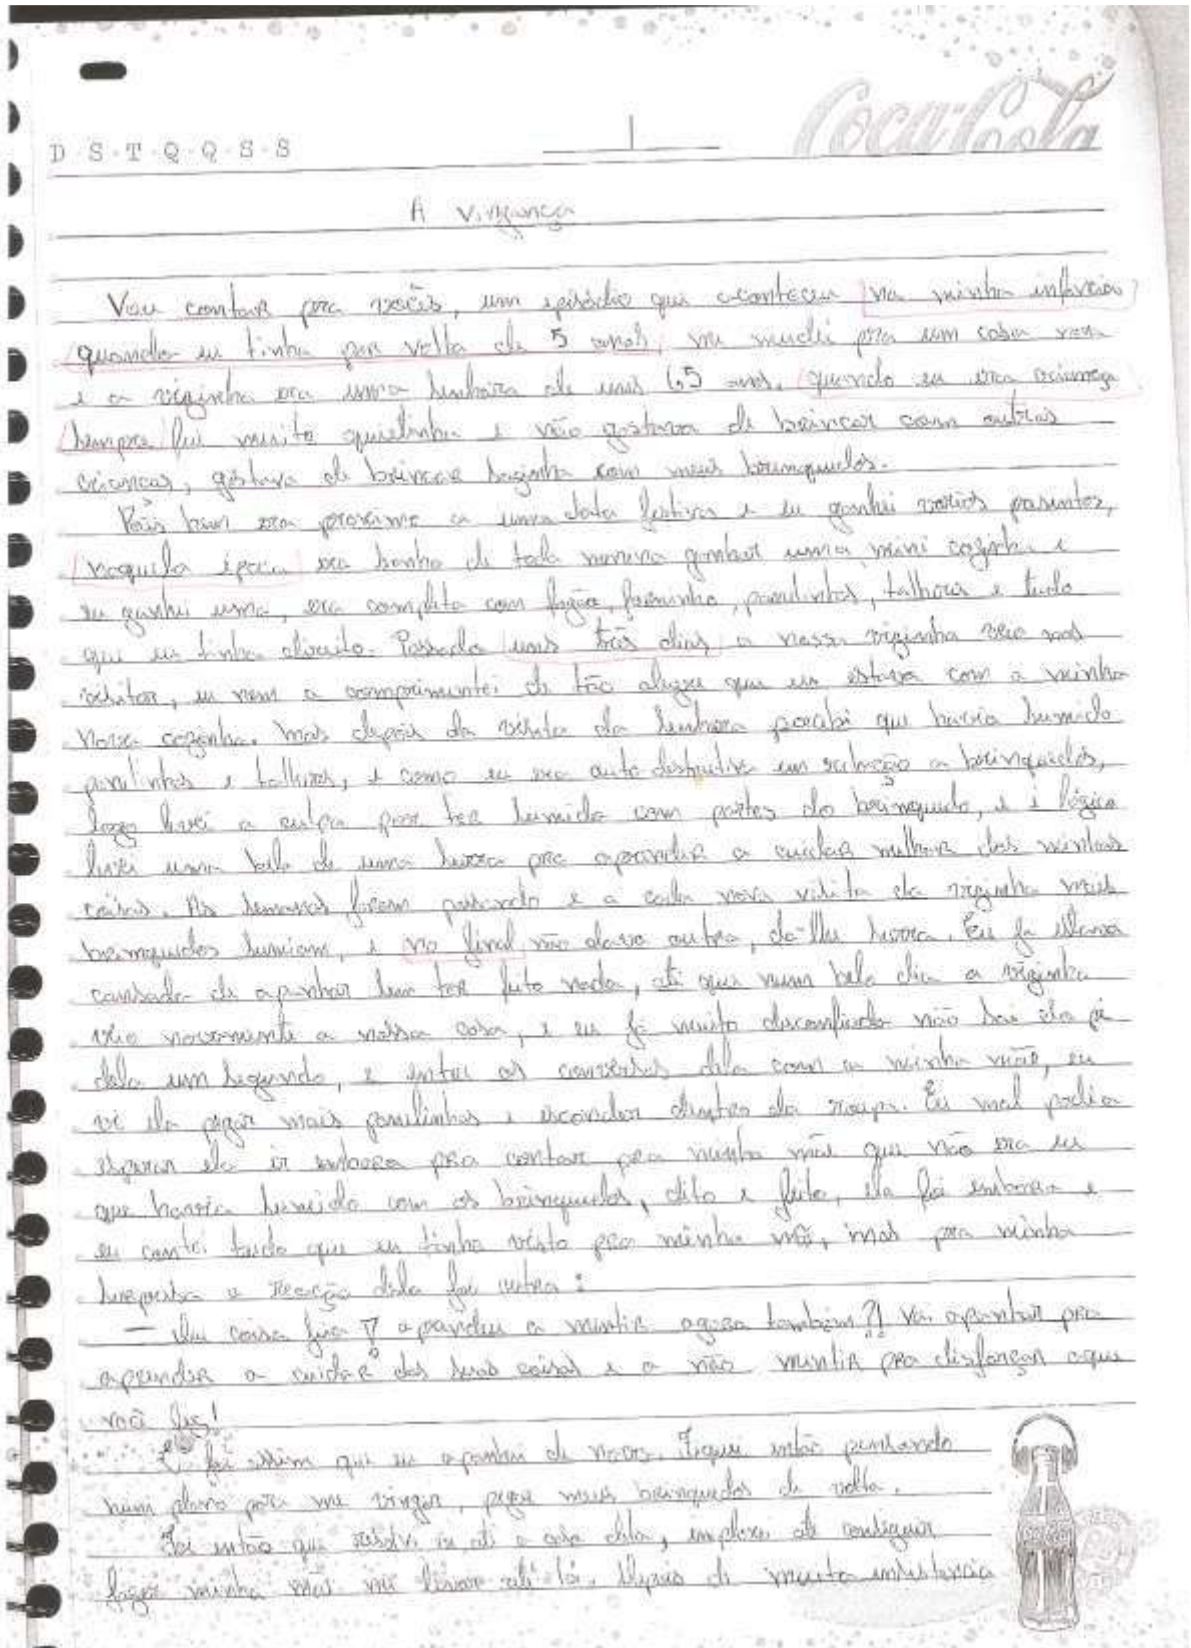 D · S · T · Q · Q · S · S
Coca-Cola
A vingança
Vou contar pra vocês, um episódio que aconteceu na minha infância
quando eu tinha por volta de 5 anos, me mudei pra um casa nova
e a vizinha era uma senhora de uns 65 anos, quando eu era criança
sempre fui muito quietinha e não gostava de brincar com outras
crianças, gostava de brincar sozinha com meus brinquedos.
Pois bem era proximo a uma data festiva e eu ganhei varios
naquela época era sonho de toda menina ganhar uma mini cozinha e
eu ganhei uma, era completa com fogão, forninho, panelinhas, talheres e tudo
que eu tinha direito. Passado uns três dias a nossa vizinha veio nos
visitar, eu nem a comprimentei de tão alegre que eu estava com a minha
nova cozinha. Mas depois da visita da senhora percebi que havia sumido
panelinhas e talheres, e como eu era auto destrutiva em relação a brinquedos,
logo levei a culpa por ter sumido com partes do brinquedo, e é lógico
levei uma bela de uma surra pra aprender a cuidar melhor das minhas
coisas. As semanas foram passando e a cada nova visita da vizinha mais
brinquedos sumiam, e no final não dava outra, dá-lhe surra. Eu já estava
cansada de apanhar sem ter feito nada, até que num belo dia a vizinha
veio novamente a nossa casa, e eu já muito desconfiada não sai do pé
dela um segundo, e entre as conversas dela com a minha mãe, eu
vi ela pegar mais panelinhas e esconder dentro da roupa. Eu mal podia
esperar ela ir embora pra contar pra minha mãe que não era eu
que havia sumido com os brinquedos, dito e feito, ela foi embora e
eu contei tudo que eu tinha visto pra minha mãe, mas pra minha
surpresa a reação dela foi outra:
– Que coisa feia!? aprendeu a mentir agora também?! Vai apanhar pra
aprender a cuidar das suas coisas e a não mentir pra disfarçar oque
você fez!
E foi assim que eu apanhei de novo. Fiquei então pensando
num plano para me vingar, pegar meus brinquedos de volta.
Foi então que resolvi ir até a casa dela, implorei até conseguir
fazer minha mãe me levar até lá. Depois de muita insistencia